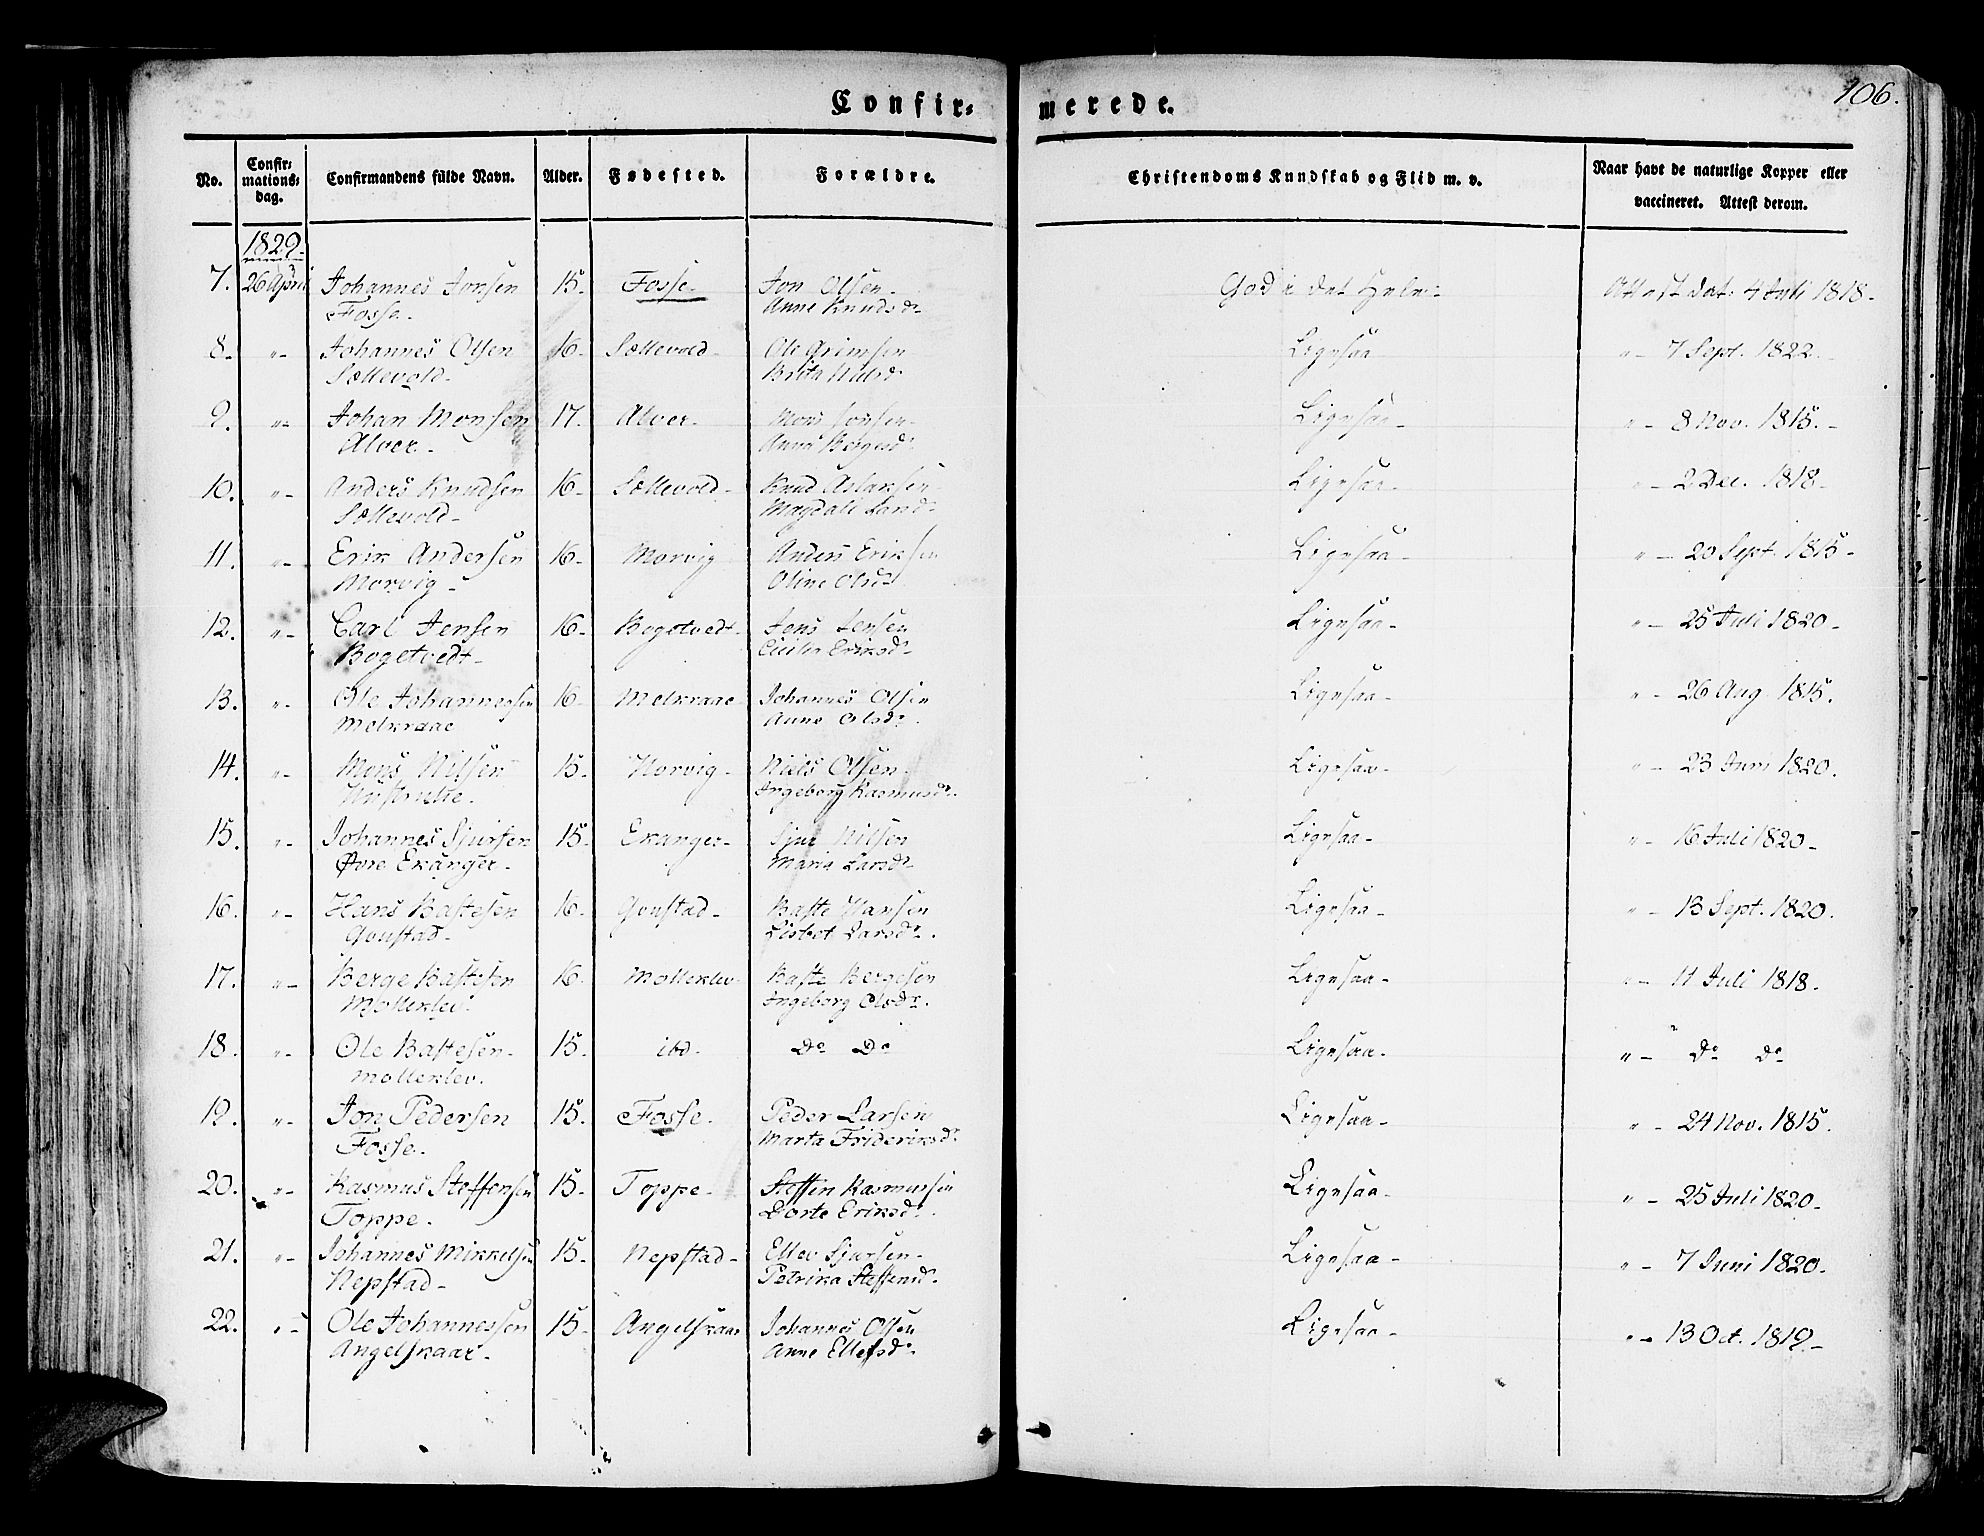 Confir= merede. 106.
No. Confir= mations= dag. Confirmandens fulde Navn. Alder. Fødested. Forældre. Christendoms Kundskab og Flid m. v. Naar havt de naturlige Kopper eller vaccineret. Attest derom.
1829.
7. 26 April Johannes Jonsen 15. Fosse. Jon Olsen. God i det Hele. Attest dat: 4 Juli 1818.
Fosse. Anne Knudsdr
8. "- Johannes Olsen 16. Sællevold. Ole Grimsen Ligesaa " 7 Sept. 1822.
Sællevold. Brita
9. "- Johan Monsen 17. Alver. Mons Jonsen. Ligesaa. "- 8 Nov. 1815.
Alver. Anna Bergesdr
10. "- Anders Knudsen 16. Sællevold. Knud Aslaksen Ligesaa. "- 2 Dec. 1818.
Sællevold. Magdali
11. "- Erik Andersen 16. Morvig Anders Eriksen Ligesaa. "- 20 Sept. 1815.
Morvig. Oline Olsdr
12. "- Carl Jensen 16. Bogetvedt. Jens Jensen Ligesaa. "- 25 Juli 1820.
Bogetvedt. Cicilia Eriksdr
13. "- Ole Johannessen 16. Melkraae Johannes Olsen Ligesaa. "- 26 Aug. 1815.
Melkraae Anne Olsdr.
14. "- Mons Nilsen 15. Horvig. Niels Olsen. Ligesaa. "- 23 Juni 1820.
Ingeborg Rasmusdr.
15. "- Johannes Sjursen 15. Ekanger. Sjur Nilsen Ligesaa. "- 16 Juli 1820.
Øvre Ekanger. Maria Larsdr
16. "- Hans Bastesen 16. Goustad. Baste Hansen Ligesaa. "- 13 Sept. 1820.
Goustad. Lisbet Larsdr.
17. "- Berge Bastesen 16. Molleklev. Baste Bergesen Ligesaa. "- 11 Juli 1818.
Molleklev. Ingeborg Olsdr.
18. "- Ole Bastesen. 15. ibd. Do Do Ligesaa. "- do do
Molleklev.
19. "- Jon Pedersen 15. Fosse. Peder Larsen Ligesaa. "- 24 Nov. 1815.
Fosse. Marta Frideriksdr.
20. "- Rasmus Steffensen 15. Toppe. Steffen Rasmussen Ligesaa. "- 25 Juli 1820.
Toppe. Dorte Eriksdr.
21. "- Johannes Mikkelsen 15. Nepstad. Ellev Sjursen. Ligesaa. "- 7 Juni 1820.
Nepstad. Petrika Steffensdr.
22. "- Ole Johannessen 15. Angelskaar Johannes Olsen Ligesaa. "- 13 Oct. 1819.
Angelskaar. Anne Ellefsdr.